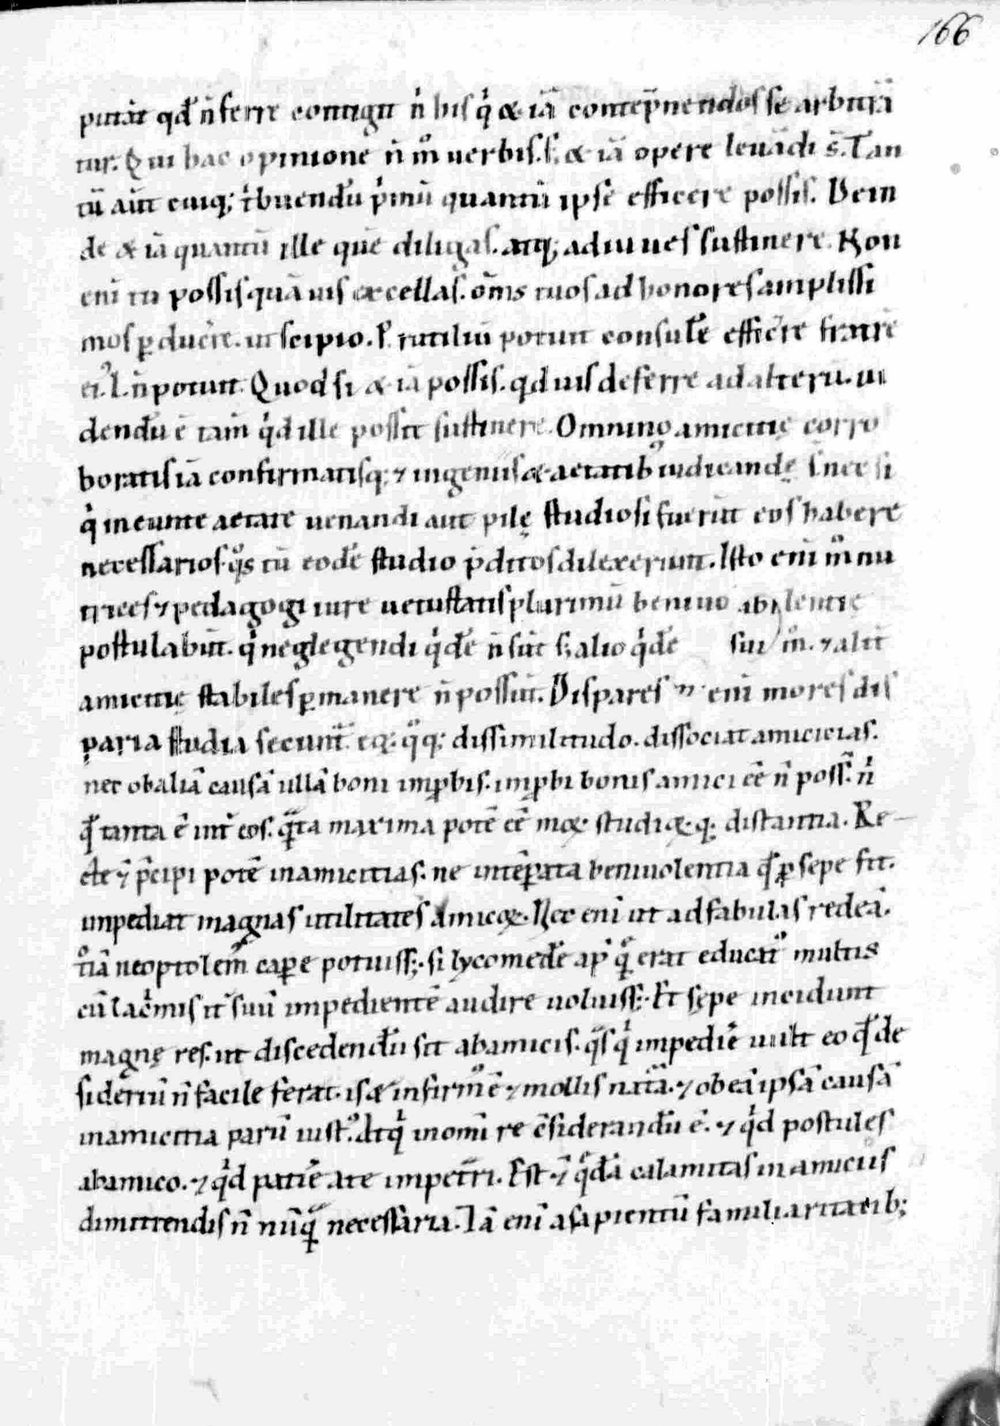 166
putāt qđ n̄ ferre contigit n̄ hıſ q̇ & iā contēp̄nendoſ ſe arbitrā
tur. Qui hac opinione n̄ m̊ uerbiſ. ſ; & iā opere leuādi s̄. Tan
tū aūt cuiq; t̍buendū p̍mū quantū ipſe efficere poſſiſ. Dein
de & iā quantū ille quē diligaſ. atq; adiuueſ ſuſtinere. Non
enī tu poſſiſ quā uiſ excellaſ. om̄s tuoſ ad honoreſ ampliſſi
moſ ꝑducere. ut ſcipio. P. rutiliū potuit conſulē efficere fratrē
ei᾽. L. n̄ potuit. Quod ſi & iā poſſiſ. qd uiſ deferre ad alterū. ui
dendū ē tam̄ q̍d ille poſſit ſuſtinere. Omnino amicitię corro
boratiſ iā confirmatiſq; ⁊ ingeniiſ & aetatib᾽ iudicandę ſ̄. nec ſi
q̍ ineunte aetate uenandi aut pilę ſtudioſi fuerūt eoſ habere
neceſſarioſ. q̊s tū eodē ſtudio p̄ditoſ dilexerunt. Iſto enī m̊ nu
triceſ ⁊ pedagogi iure uetuſtatiſ plurimū beniuolentię
poſtulabūt. q̍ neglegendi q̍dē n̄ ſūt ſ; alio q̍dē ſūi m̊. ⁊ alit̄
amicitię ſtabileſ ꝑmanere n̄ poſſūt. Diſpareſ enī moreſ diſ
paria ſtudia ſecunt̄. eq. q̊q; diſſimilitudo. diſſociat amiciciaſ.
nec ob aliā cauſā ullā boni imꝓbiſ. imꝓbi boniſ amici eē n̄ poſſ̄. n̄
qđ tanta ē int̄ eoſ. q̄ta maxima potē eē moꝝ ſtudioꝝ. q; diſtantia. Re
cte ⁊ p̄cipi potē in amicitiaſ. ne intēꝑata beniuolentia qđ ꝑſepe fit.
impediat magnaſ utilitateſ amicoꝝ. Nec enī ut ad fabulaſ redeā.
t̊iā neoptolem̄ caꝑe potuiſſ;. ſi lycomedē ap᾽ quē erat educat᾽ multis
cū lac̍miſ it̄ ſuū impedientē audire uoluiſſ;. Et ſępe incidunt
magnę reſ. ut diſcedendū ſit ab amiciſ. q̄ſ q̍ impedīe uult eo qđ de
ſideriū n̄ facile ferat. iſ & infirm᾽ ē ⁊ molliſ natā. ⁊ ob eā ipſā cauſā
in amicitia parū iuſt᾽. Atq̍ in omī re c̄ſiderandū ē. ⁊ q̍d poſtuleſ
ab amico. ⁊ q̍d patiē a te impet̄ri. Eſt ⁊ q̊dā calamitaſ in amiciis
dimittendiſ n̄ nūq̄ neceſſaria. Iā enī a ſapientū familiaritatib;